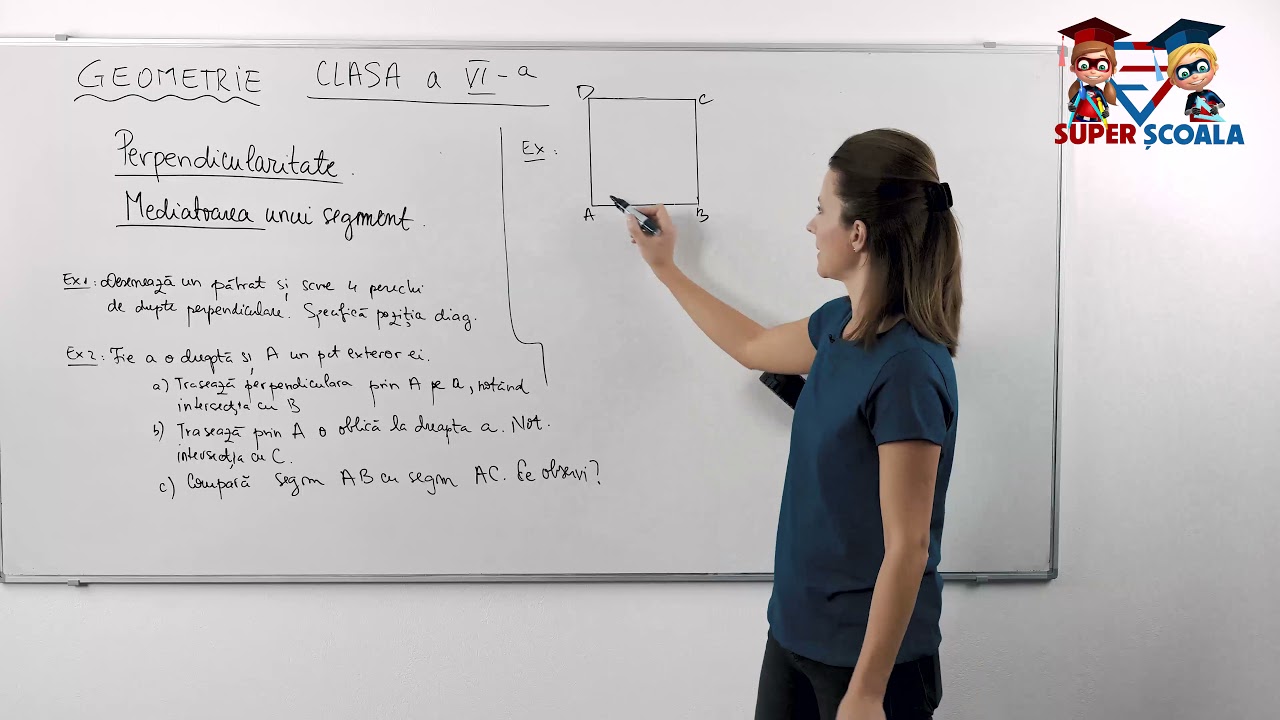 GEOMETRIE CLASA a VI-a
Perpendicularitate.
Mediatoarea unui segment.
Ex1: Desenează un pătrat și scrie 4 perechi
de drepte perpendiculare. Specifică poziția diag.
Ex2: Fie a o dreaptă și A un pct exterior ei.
a) Trasează perpendiculara prin A pe a, notând
intersecția cu B
b) Trasează prin A o oblică la dreapta a. Not.
intersecția cu C.
c) Compară segm AB cu segm AC. Ce observi?
Ex:
D C
A B
SUPER ȘCOALA